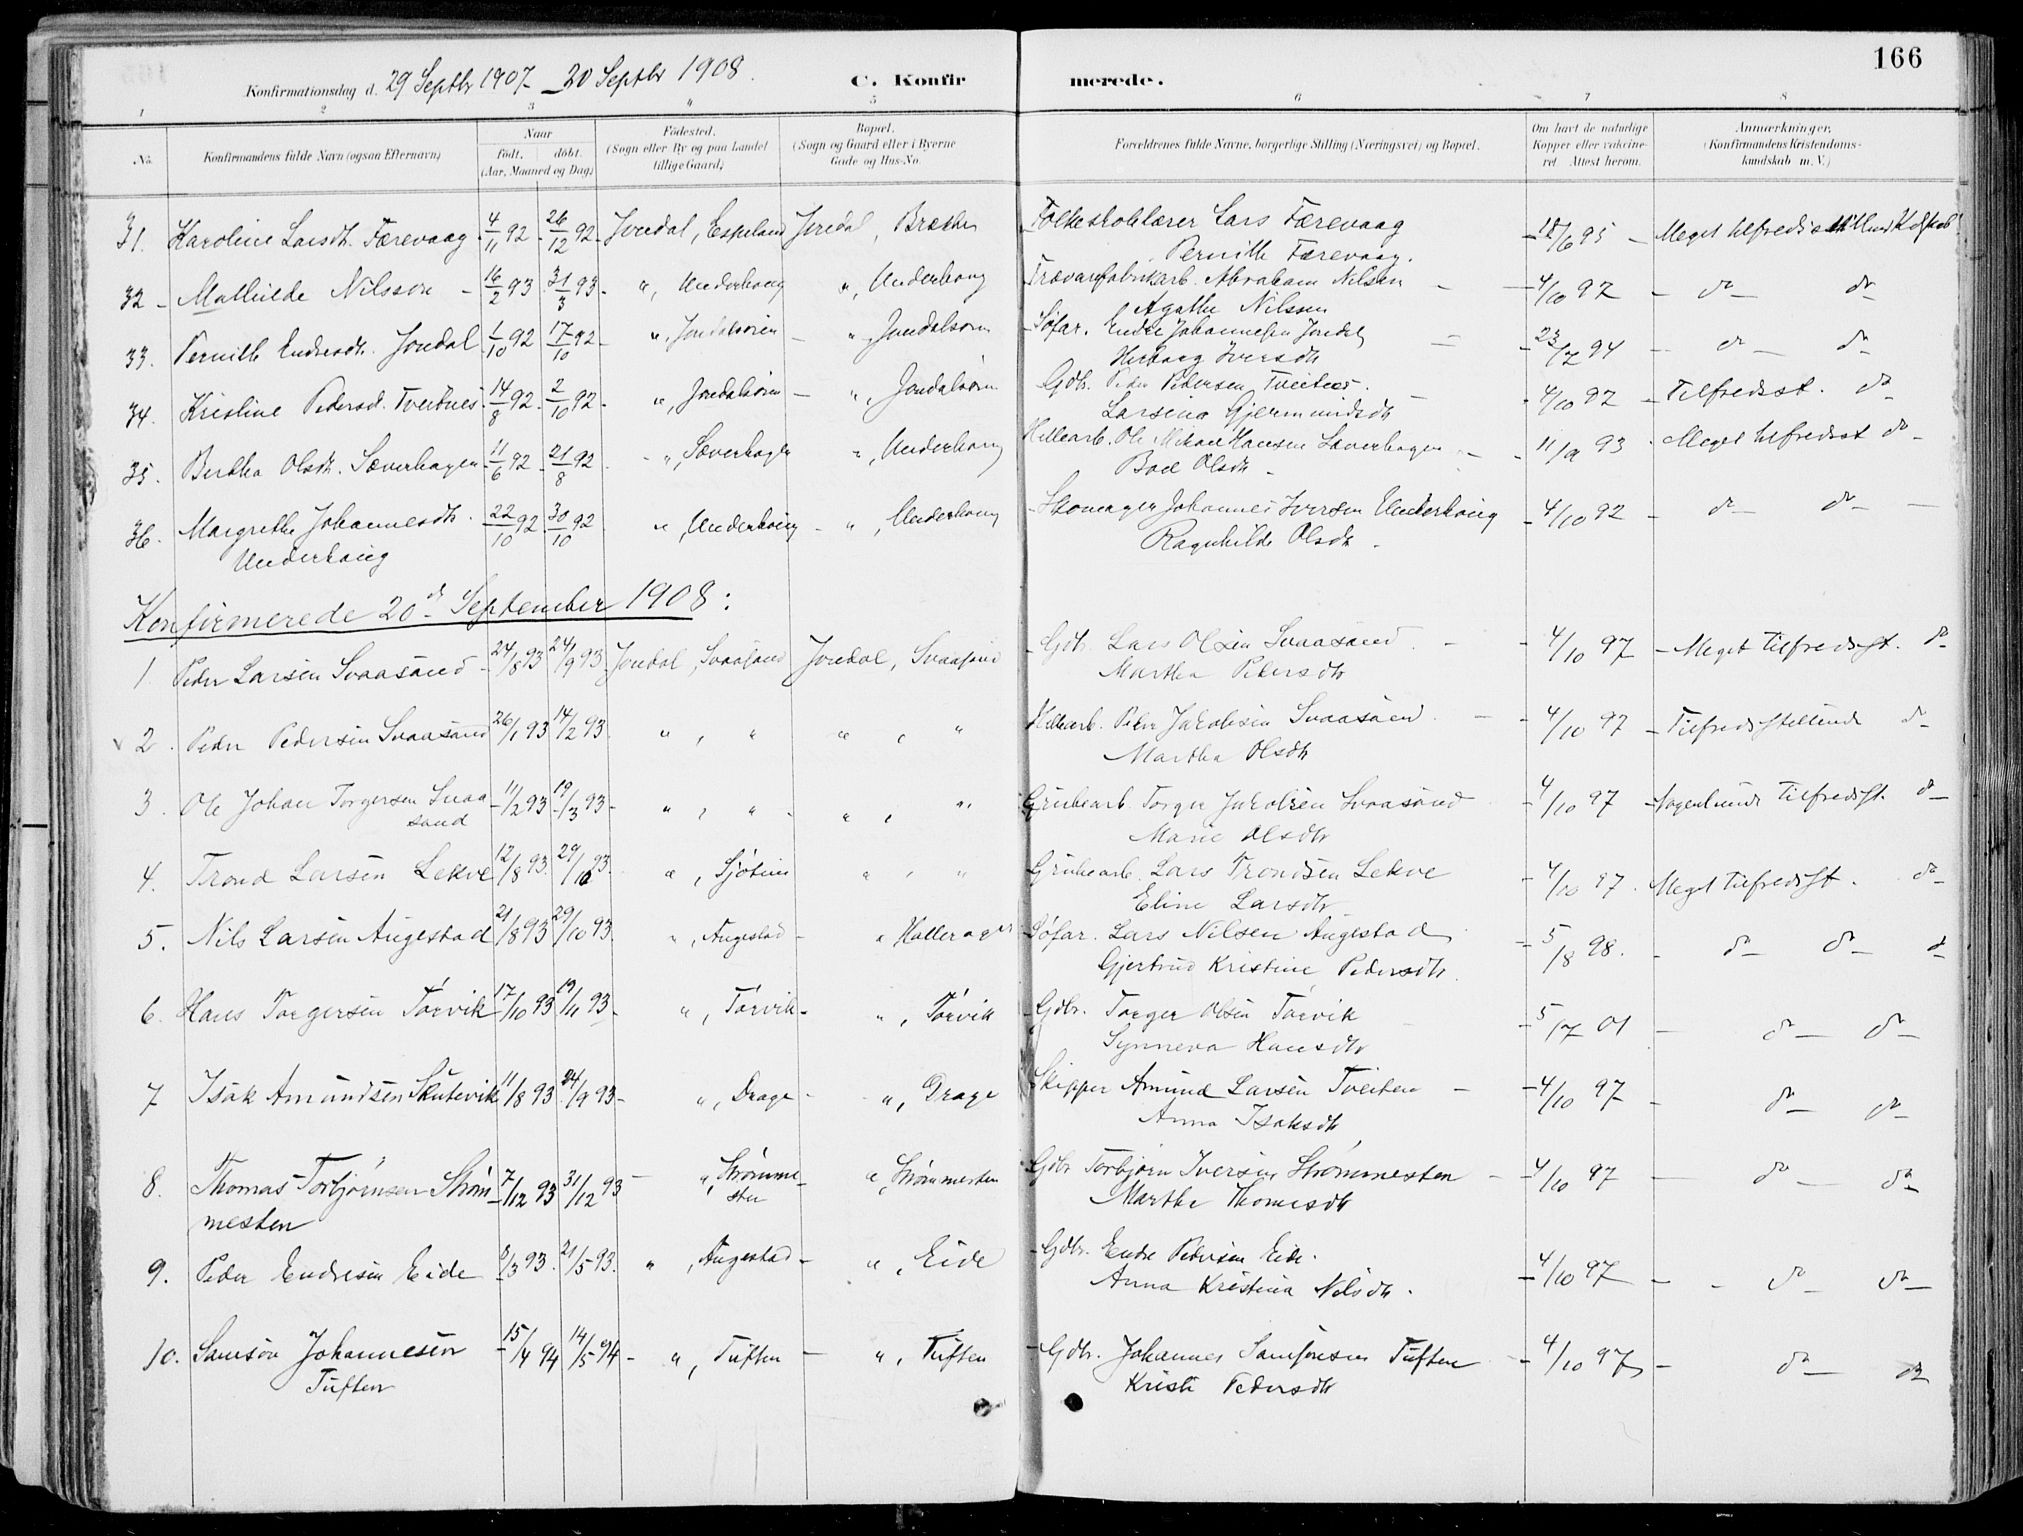 166
Konfirmationsdag d. 29 Septbr 1907 - 20 Septbr 1908.
C. Konfirmerede.
1 2 3 4 5 6 7 8
No. Konfirmandens fulde Navn (ogsaa Efternavn) Naar født. døbt. (Aar, Maaned og Dag) Fødested. (Sogn eller By og paa Landet tillige Gaard) Bopæl. (Sogn og Gaard eller i Byerne Gade og Hus-No. Forældrenes fulde Navne, borgerlige Stilling (Næringsvei) og Bopæl. Om havt de naturlige Kopper eller vakcineret Attest herom. Anmærkninger. (Konfirmandens Kristendomskundskab m. V.)
31. Karoline Larsdtr. Færevaag 4/11 92 26/12 92 Jondal, Espeland Jondal, Folkeskolelærer Lars Færevaag 18/6 95 - Meget tilfredsstillend
Pernille Færevaag.
32 - Mathilde Nilsson - 16/2 93 31/3 93 - ", Underhaug ", Underhaug Trævarefabrikarb. Abraham Nilsen - 4/10 97 - do - do
Agathe Nilssen
33. Pernille Endresdtr. Jondal 1/10 92 17/10 92 - ", Jondalsøren - ", Jondalsøren Søfar. Endre Johannessen Jondal 23/7 94 - do - do
Herborg Iversdtr
34. Kristine Pedersd. Tveitnes 14/8 92 2/10 92 - ", Jondalsøren - ", Jondalsøren Gdbr. Peder Pedersen Tveitnes - 4/10 97 - Tilfredsst. do
Larsina Gjermundsdtr
35. Bertha Olsdtr. Sæverhagen 11/6 92 21/8 92 - ", Sæverhagen ", Underhaug Hellearb. Ole Mikael Hansen Sæverhagen - 11/9 93 - Meget tilfredsst do -
Boel Olsdtr -
36. Margrethe Johannesdtr. 22/10 92 30/10 92 ", Underhaug - ", Underhaug Skomager Johannes Iversen Underhaug - 4/10 92 - do - do -
Underhaug Ragnhilde Olsdtr.
Konfirmerede 20de September 1908:
1. Peder Larsen Svaasand - 24/8 93 24/9 93 Jondal, Svaasand Jondal, Svaasand - Gdb. Lars Olsen Svaasand - 4/10 97 - Meget Tilfredsst. do
Martha Pedersdtr
2. Peder Pedersen Svaasand 26/1 93 14/2 93. " , " " , " Hellearb. Peder Jakobsen Svaasand - 4/10 97 - Tilfredsstillende do -
Martha Olsdtr
3. Ole Johan Torgersen Svaa 11/2 93 19/3 93 - " , " - " , " Grubearb. Torger Jakobsen Svaasand - 4/10 97 - Nogenlunde Tilfredsst. do -
sand Marie Olsdtr
4. Trond Larsen Lekve 12/8 93. 29/10 93. " , " , " Grubearb. Lars Trondsen Lekve - 4/10 97. Meget Tilfredsst. do -
Eline Larsdtr
5. Nils Larsen Augestad 21/8 93 29/10 93. ", Augestad - " Hallerager Søfar. Lars Nilsen Augestad - 5/8 98. - do - do -
Gjertrud Kristine Pedersdtr.
6. Hans Torgersen Torvik 17/10 93 19/11 93. ", Torvik - ", Torvik Gdbr. Torger Olsen Torvik - 5/7 01 - do - do -
Synneva Hansdtr
7 Isak Amundsen Skutevik 11/8 93 24/9 93 - ", Drage - ", Drage Skipper Amund Larsen Tveiten - 4/10 97 - do - do -
Anna Isaksdtr
8. Thomas Torbjørnsen Strøm 7/12 93 31/12 93 - ", Strømme- ", Strømmesten Gdbr Torbjørn Iversen Strømmesten - 4/10 97 - do - do -
mesten sten Marthe Thomesdtr
9. Peder Endresen Eide 8/3 93. 21/5 93. ", Augestad - ", Eide - Gdbr. Endre Pedersen Eide. 4/10 97 - do do -
Anna Kristina Nilsdtr.
10. Samson Johannesen 15/4 94 14/5 94 - ", Tuften - ", Tuften - Gdbr. Johannes Samsonsen Tuften - 4/10 97 - do - do
Tuften Kristi Pedersdtr